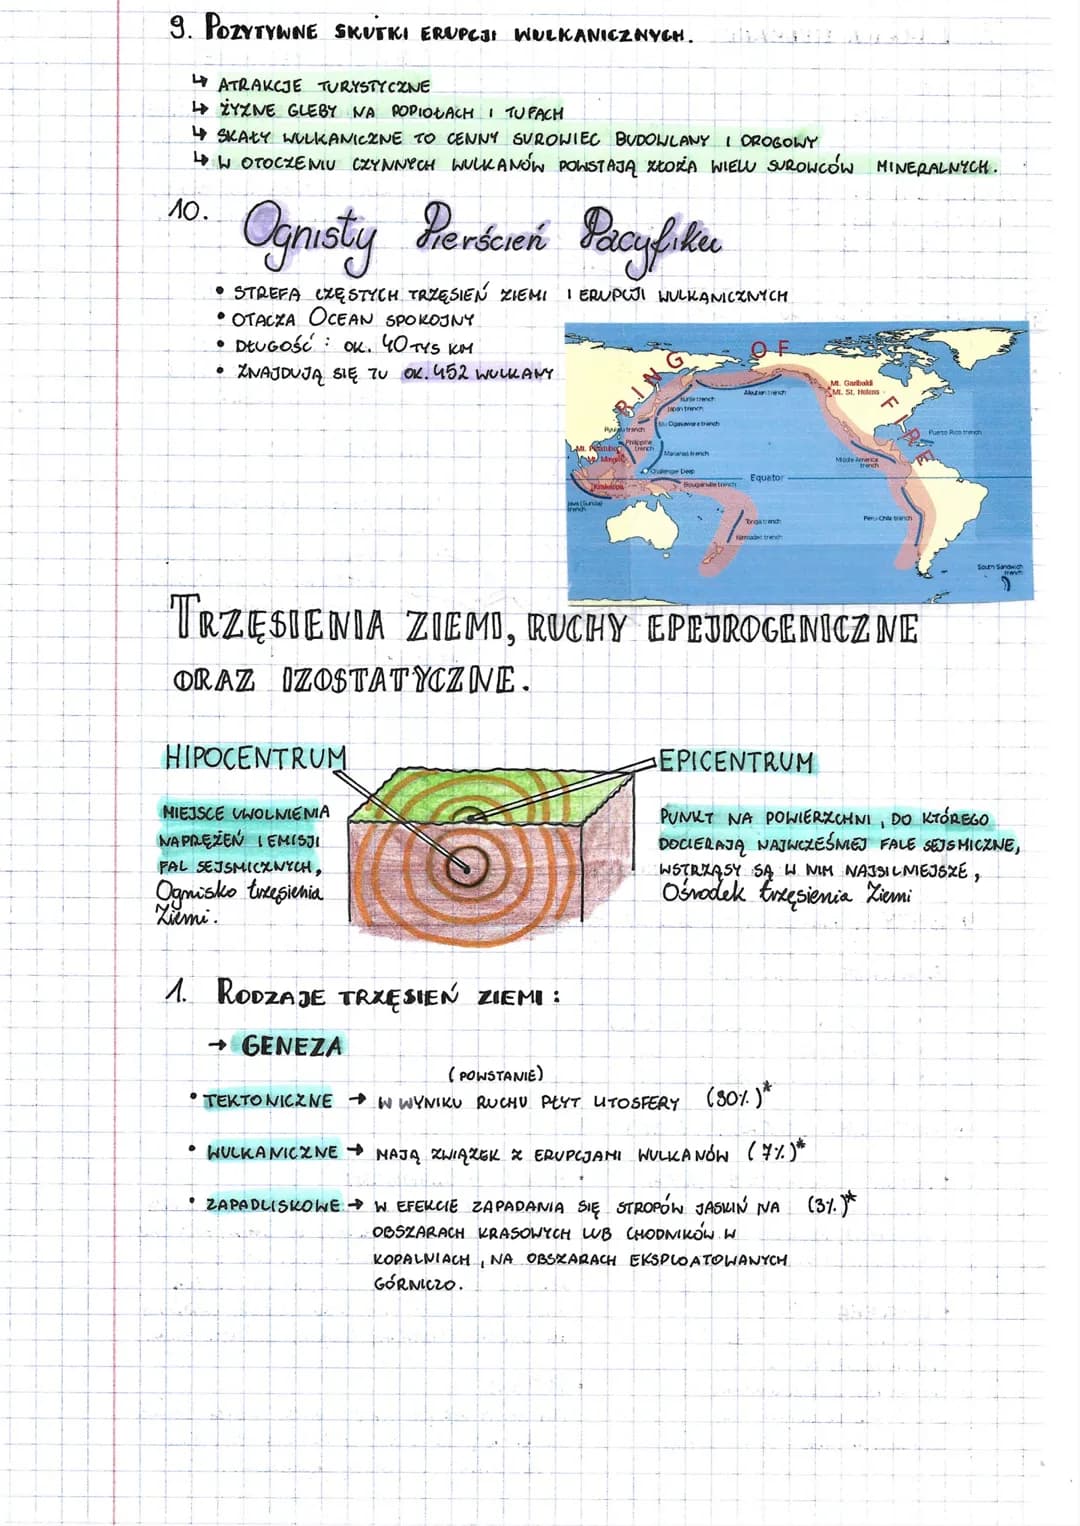 9. POZYTYWNE SKUTKI ERUPCJI WULKANICZNYCH.
↳ ATRAKCJE TURYSTYCZNE
↳ ŻYZNE GLEBY NA POPIOŁACH I TUFACH
↳ SKAŁY WULKANICZNE TO CENNY SUROWIEC BUDOWLANY I DROGOWY
↳ W OTOCZENIU CZYNNYCH WULKANÓW POWSTAJĄ ZŁOŻA WIELU SUROWCÓW MINERALNYCH.
10. Ognisty Pierścień Pacyfiku
• STREFA CZĘSTYCH TRZĘSIEŃ ZIEMI I ERUPCJI WULKANICZNYCH
• OTACZA OCEAN SPOKOJNY
• DŁUGOŚĆ : OK. 40 TYS KM
• ZNAJDUJĄ SIĘ TU OK. 452 WULKANY
RING OF FIRE
Mt. Garibaldi
Mt. St. Helens
Aleutian trench
Kurile trench
Japan trench
Izu Ogasawara trench
Ryukyu trench
Puerto Rico trench
Philippine trench
Mt. Pinatubo
Mt. Mayon
Marianas trench
Middle America trench
Challenger Deep
Equator
Krakatoa
Bougainville trench
Java (Sunda) trench
Tonga trench
Peru-Chile trench
Kermadec trench
South Sandwich trench
TRZĘSIENIA ZIEMI, RUCHY EPEJROGENICZNE
ORAZ IZOSTATYCZNE.
HIPOCENTRUM
MIEJSCE UWOLNIENIA
NAPRĘŻEŃ I EMISJI
FAL SEJSMICZNYCH,
Ognisko trzęsienia
Ziemi.
EPICENTRUM
PUNKT NA POWIERZCHNI, DO KTÓREGO
DOCIERAJĄ NAJWCZEŚNIEJ FALE SEJSMICZNE,
WSTRZĄSY SĄ W NIM NAJSILNIEJSZE,
Ośrodek trzęsienia Ziemi
1. RODZAJE TRZĘSIEŃ ZIEMI :
→ GENEZA
(POWSTANIE)
• TEKTONICZNE → W WYNIKU RUCHU PŁYT LITOSFERY (90%)*
• WULKANICZNE → MAJĄ ZWIĄZEK Z ERUPCJAMI WULKANÓW (7%)*
• ZAPADLISKOWE → W EFEKCIE ZAPADANIA SIĘ STROPÓW JASKIŃ NA (3%)*
OBSZARACH KRASOWYCH LUB CHODNIKÓW W
KOPALNIACH, NA OBSZARACH EKSPLOATOWANYCH
GÓRNICZO.